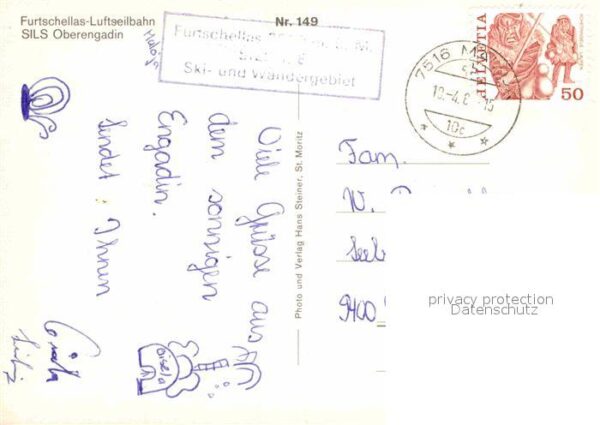 Furtschellas-Luftseilbahn
SILS Oberengadin
Nr. 149
Maloja
Furtschellas
Ski- und Wandergebiet
7516 M
10c
HELVETIA
50
Viele Grüsse aus
dem sonnigen
Engadin.
sendet Ihnen
Gisela
Photo und Verlag Hans Steiner, St. Moritz
Fam.
W.
Seeb
9400
privacy protection
Datenschutz